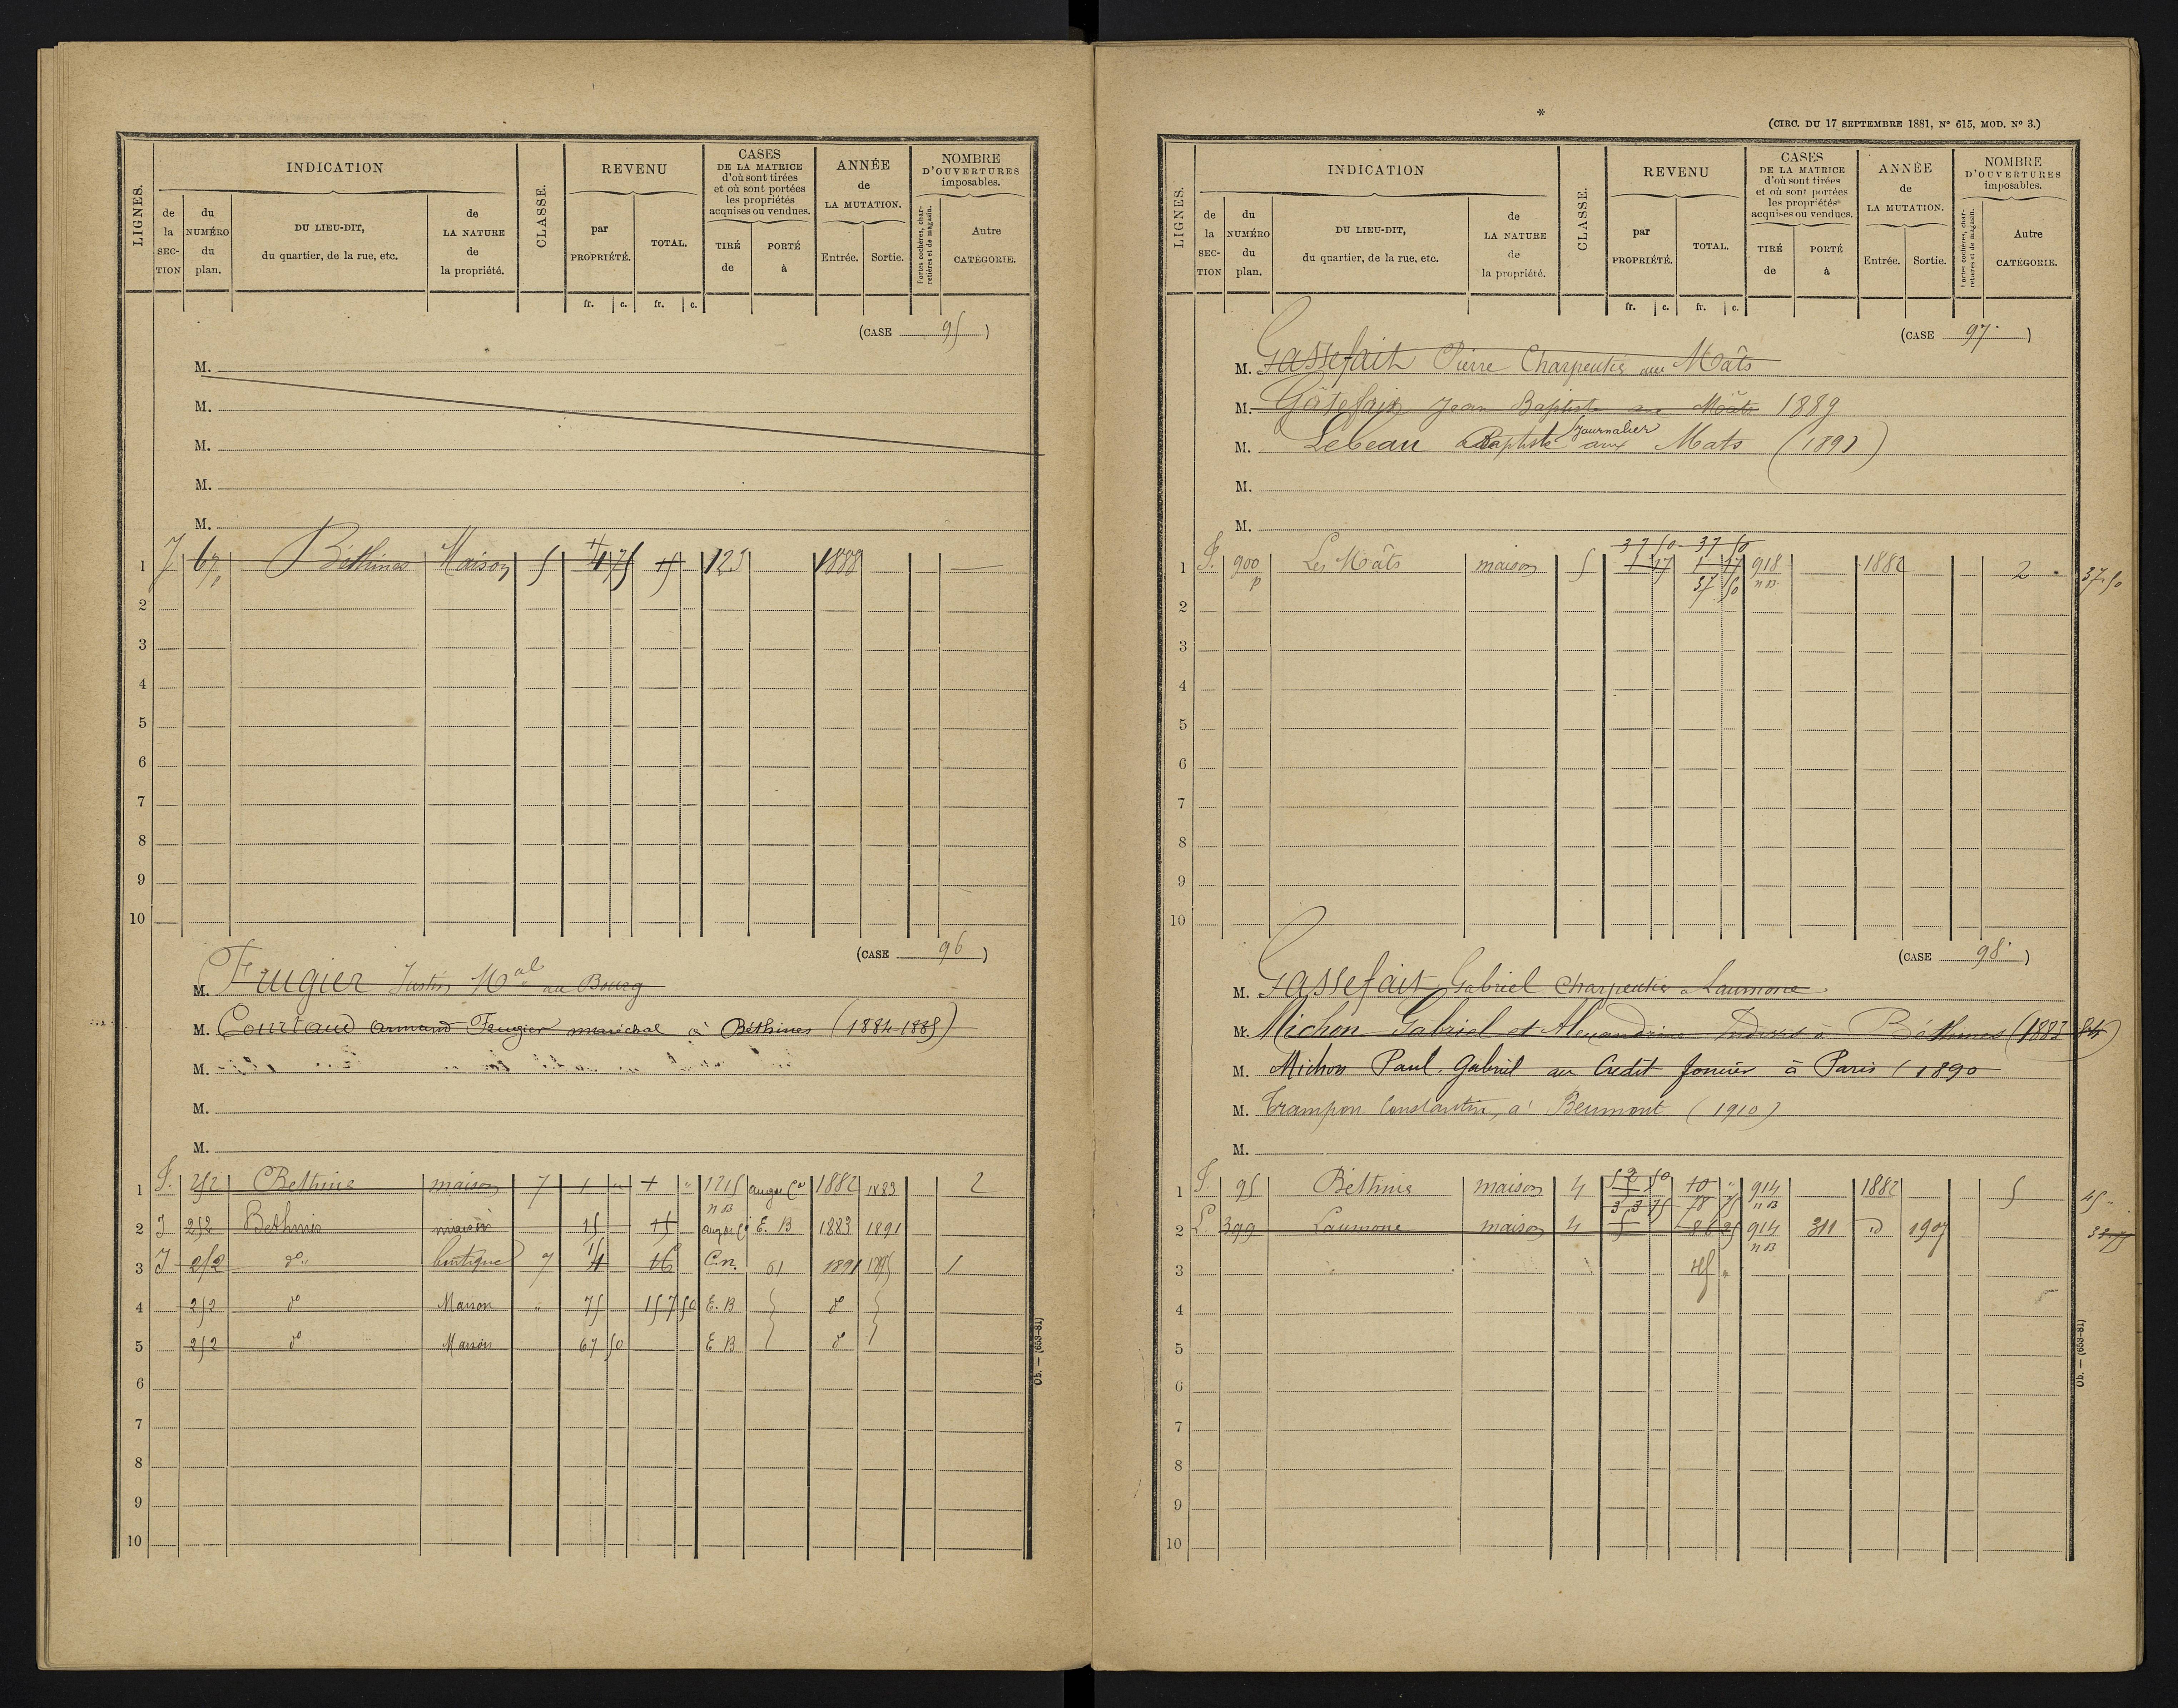 LIGNES.
INDICATION
CLASSE.
REVENU
CASES
DE LA MATRICE
d'où sont tirées
et où sont portées
les propriétés
acquises ou vendues.
ANNÉE
de
LA MUTATION.
NOMBRE
D'OUVERTURES
imposables.
de la SECTION
du NUMÉRO du plan.
DU LIEU-DIT,
du quartier, de la rue, etc.
de LA NATURE de la propriété.
par PROPRIÉTÉ.
TOTAL.
TIRÉ de
PORTÉ à
Entrée.
Sortie.
Portes cochères, charretières et de magasin.
Autre CATÉGORIE.
fr. c. fr. c.
(CASE 95)
M.
M.
M.
M.
M.
1 J 67p Béthines Maison 5 75 15 123 1888
2
3
4
5
6
7
8
9
10
(CASE 96)
M. Frugier Justin Mal au Bourg
M. Courtaud Armand Feugier maréchal à Béthines (1884-1885)
M.
M.
M.
1 J. 252 Bethine maison 7 1 " 1 " 1215 nB 1882 1883 2
2 J 252 Bethines maison 15 15 E. B 1883 1891
3 J 252 do boutique 7 16 C.n. 61 1891 1895 1
4 252 do Maison " 75 157 50 E. B do
5 252 do Maison 67 50 E B do
6
7
8
9
10
Ob. — (653-81)
*
(CIRC. DU 17 SEPTEMBRE 1881, No 615, MOD. No 3.)
LIGNES.
INDICATION
CLASSE.
REVENU
CASES
DE LA MATRICE
d'où sont tirées
et où sont portées
les propriétés
acquises ou vendues.
ANNÉE
de
LA MUTATION.
NOMBRE
D'OUVERTURES
imposables.
de la SECTION
du NUMÉRO du plan.
DU LIEU-DIT,
du quartier, de la rue, etc.
de LA NATURE de la propriété.
par PROPRIÉTÉ.
TOTAL.
TIRÉ de
PORTÉ à
Entrée.
Sortie.
Portes cochères, charretières et de magasin.
Autre CATÉGORIE.
fr. c. fr. c.
(CASE 97)
M. Gassefait Pierre Charpentier aux Mâts
M. Gâtefait Jean Baptiste aux Mâts 1889
M. Lebeau Baptiste Journalier aux Mats
M.
M.
37 50 37 50
1 J. 900 p Les Mâts maison 5 1 17 1 17 918 nB 1882 2 37.50
37 50
2
3
4
5
6
7
8
9
10
(CASE 98)
M. Gassefait Gabriel Charpentier a Laumone
M. Michon Gabriel et Alexandrine Indivis à Béthines (1883 84)
M. Michon Paul Gabriel au Crédit foncier à Paris (1890
M. Trampon Constantin, à Beumont (1910)
M.
52 50
1 J. 95 Béthine maison 4 5 10 " 914 nB 1882 5 45 "
33 75 78 75
2 L. 399 Laumone maison 4 5 86 25 914 nB 311 d 1907
3 45 "
4
5
6
7
8
9
10
Ob. — (653-81)